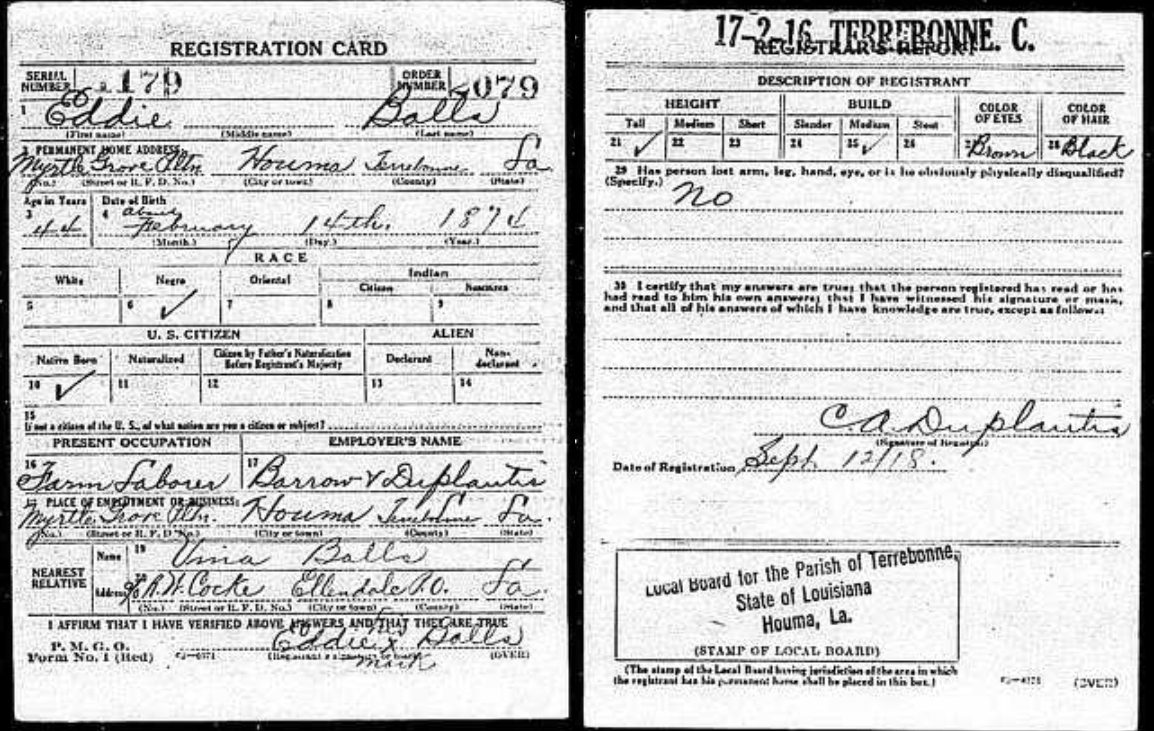 REGISTRATION CARD
SERIAL NUMBER 179 ORDER NUMBER 079
1 Eddie Balls
(First name) (Middle name) (Last name)
2 PERMANENT HOME ADDRESS:
Myrtle Grove Pltn. Houma Terrebonne La
(No.) (Street or R. F. D. No.) (City or town) (County) (State)
Age in Years Date of Birth
3 44 4 about February 14th. 1874
(Month.) (Day.) (Year.)
RACE
White Negro Oriental Indian
Citizen Noncitizen
5 6 ✓ 7 8 9
U. S. CITIZEN ALIEN
Native Born Naturalized Citizen by Father's Naturalization Before Registrant's Majority Declarant Non-declarant
10 ✓ 11 12 13 14
15
If not a citizen of the U. S., of what nation are you a citizen or subject?
PRESENT OCCUPATION EMPLOYER'S NAME
16 Farm Laborer 17 Barrow & Duplantis
PLACE OF EMPLOYMENT OR BUSINESS:
Myrtle Grove Pltn. Houma Terrebonne La.
(No.) (Street or R. F. D. No.) (City or town) (County) (State)
NEAREST RELATIVE Name 19 Balls
Address 20 % R. W. Cocke Ellendale P.O. La.
(No.) (Street or R. F. D. No.) (City or town) (County) (State)
I AFFIRM THAT I HAVE VERIFIED ABOVE ANSWERS AND THAT THEY ARE TRUE
P. M. G. O.
Form No. 1 (Red) Eddie his x mark Balls
(Registrant's signature or mark) (OVER)
17-2-16 TERREBONNE. C.
REGISTRAR'S REPORT
DESCRIPTION OF REGISTRANT
HEIGHT BUILD COLOR OF EYES COLOR OF HAIR
Tall Medium Short Slender Medium Stout
21 ✓ 22 23 24 25 ✓ 26 27 Brown 28 Black
29 Has person lost arm, leg, hand, eye, or is he obviously physically disqualified?
(Specify.) No
30 I certify that my answers are true; that the person registered has read or has
had read to him his own answers; that I have witnessed his signature or mark,
and that all of his answers of which I have knowledge are true, except as follows:
C A Duplantis
(Signature of Registrar)
Date of Registration Sept 12/18.
Local Board for the Parish of Terrebonne,
State of Louisiana
Houma, La.
(STAMP OF LOCAL BOARD)
(The stamp of the Local Board having jurisdiction of the area in which
the registrant has his permanent home shall be placed in this box.)
(OVER)